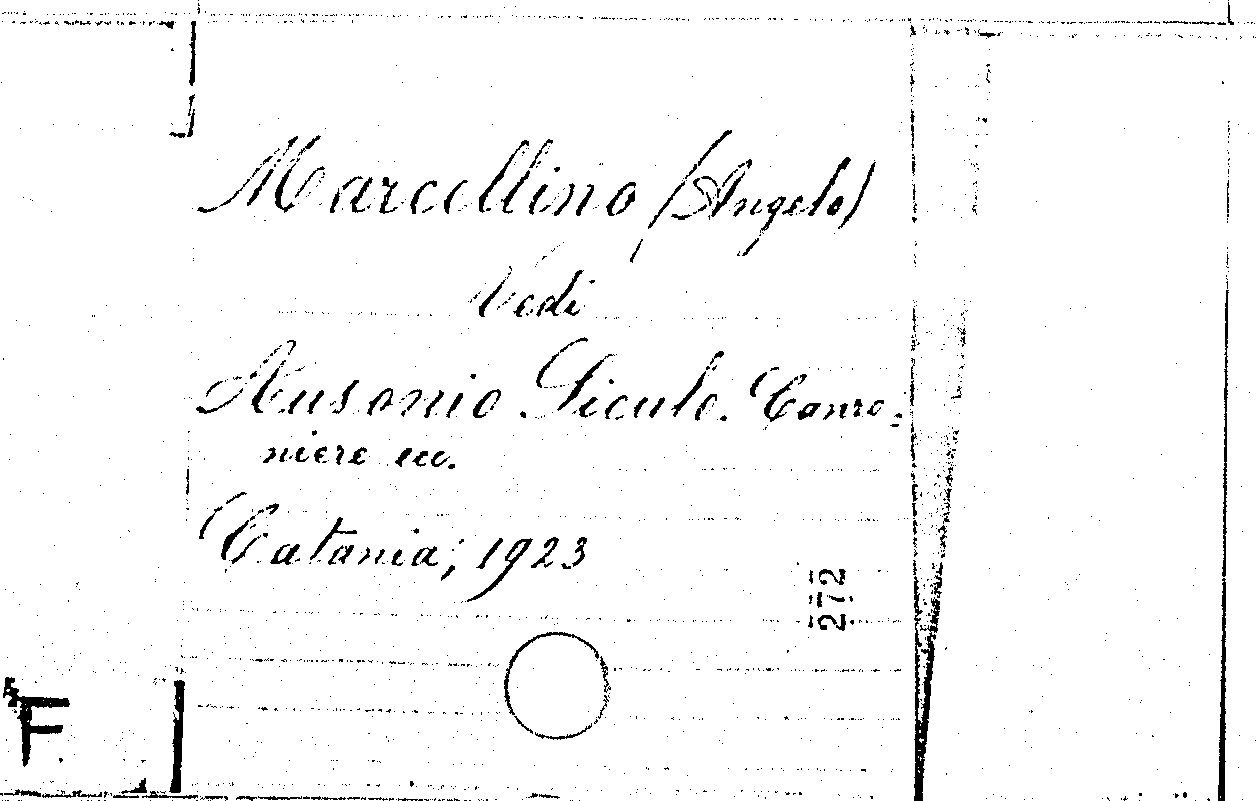 Marcellino (Angelo)
Vedi
Ausonio Siculo. Canzo=
niere ecc.
Catania, 1923
272
F